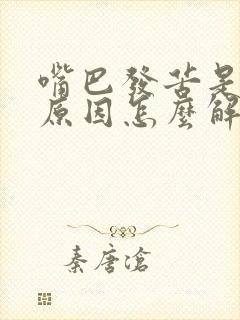 嘴巴發苦是
原因怎麼解
秦唐滄